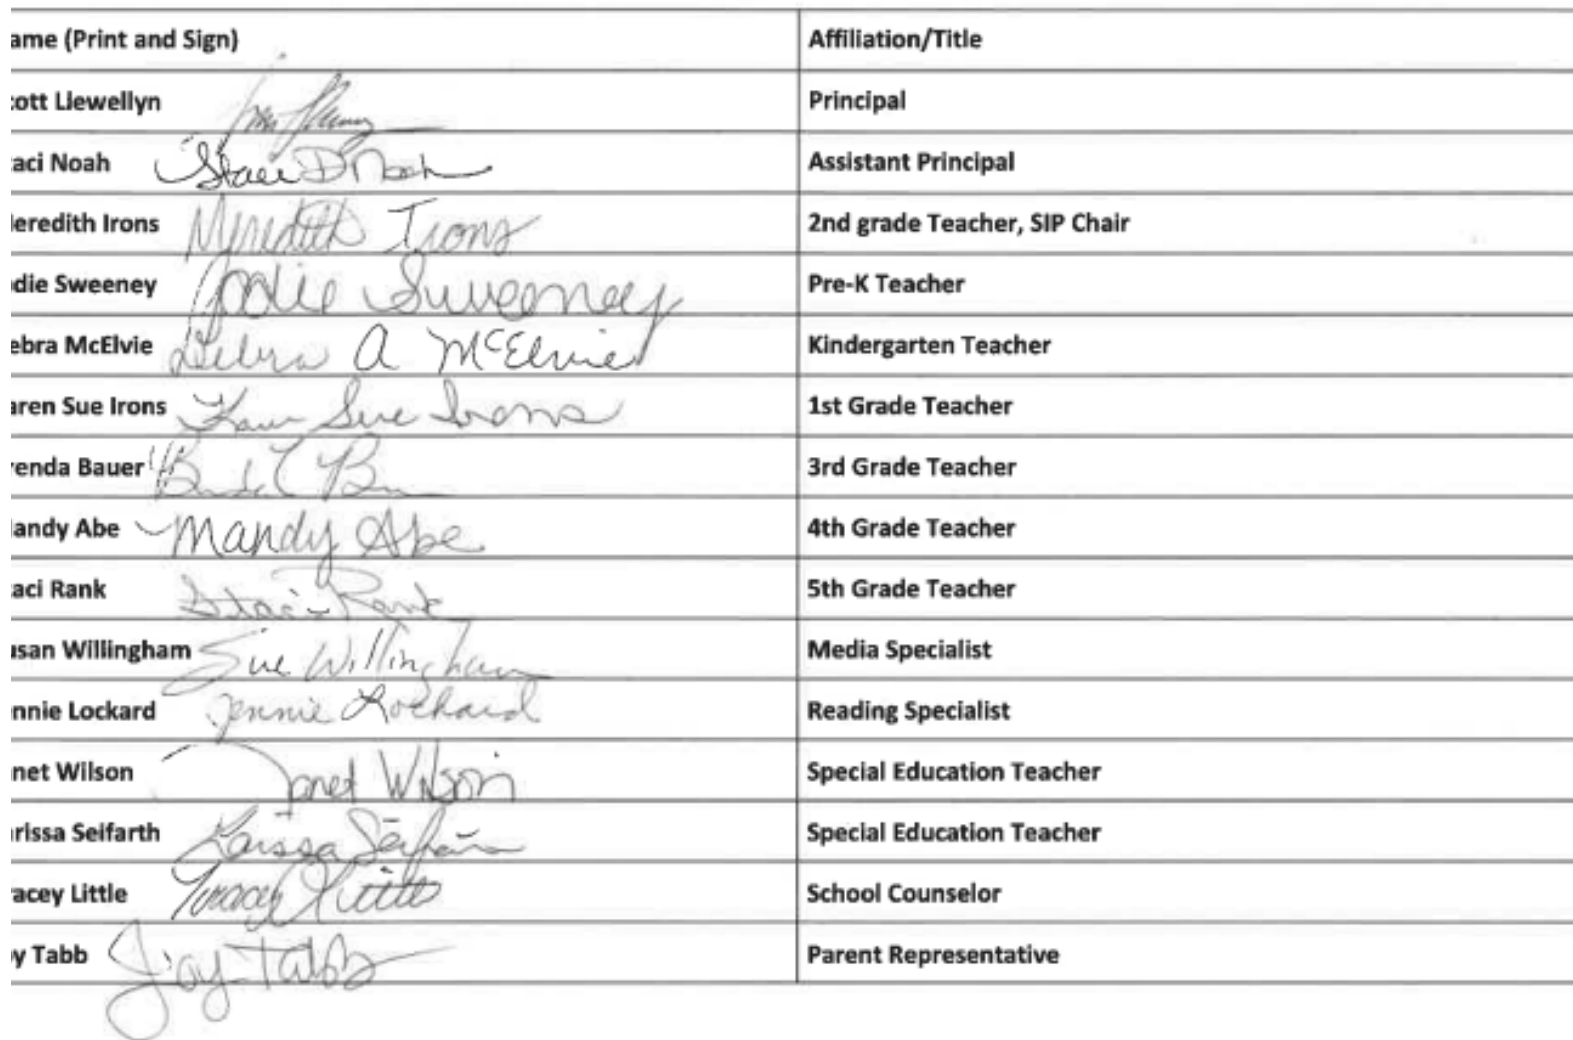 ame (Print and Sign) Affiliation/Title
cott Llewellyn Principal
taci Noah Staci D Noah Assistant Principal
leredith Irons Meredith Irons 2nd grade Teacher, SIP Chair
die Sweeney Jodie Sweeney Pre-K Teacher
ebra McElvie Debra A McElvie Kindergarten Teacher
aren Sue Irons Karen Sue Irons 1st Grade Teacher
renda Bauer 3rd Grade Teacher
landy Abe Mandy Abe 4th Grade Teacher
taci Rank Staci Rank 5th Grade Teacher
usan Willingham Sue Willingham Media Specialist
nnie Lockard Jennie Lockard Reading Specialist
net Wilson Janet Wilson Special Education Teacher
rissa Seifarth Karissa Seifarth Special Education Teacher
racey Little Tracey Little School Counselor
y Tabb Joy Tabb Parent Representative